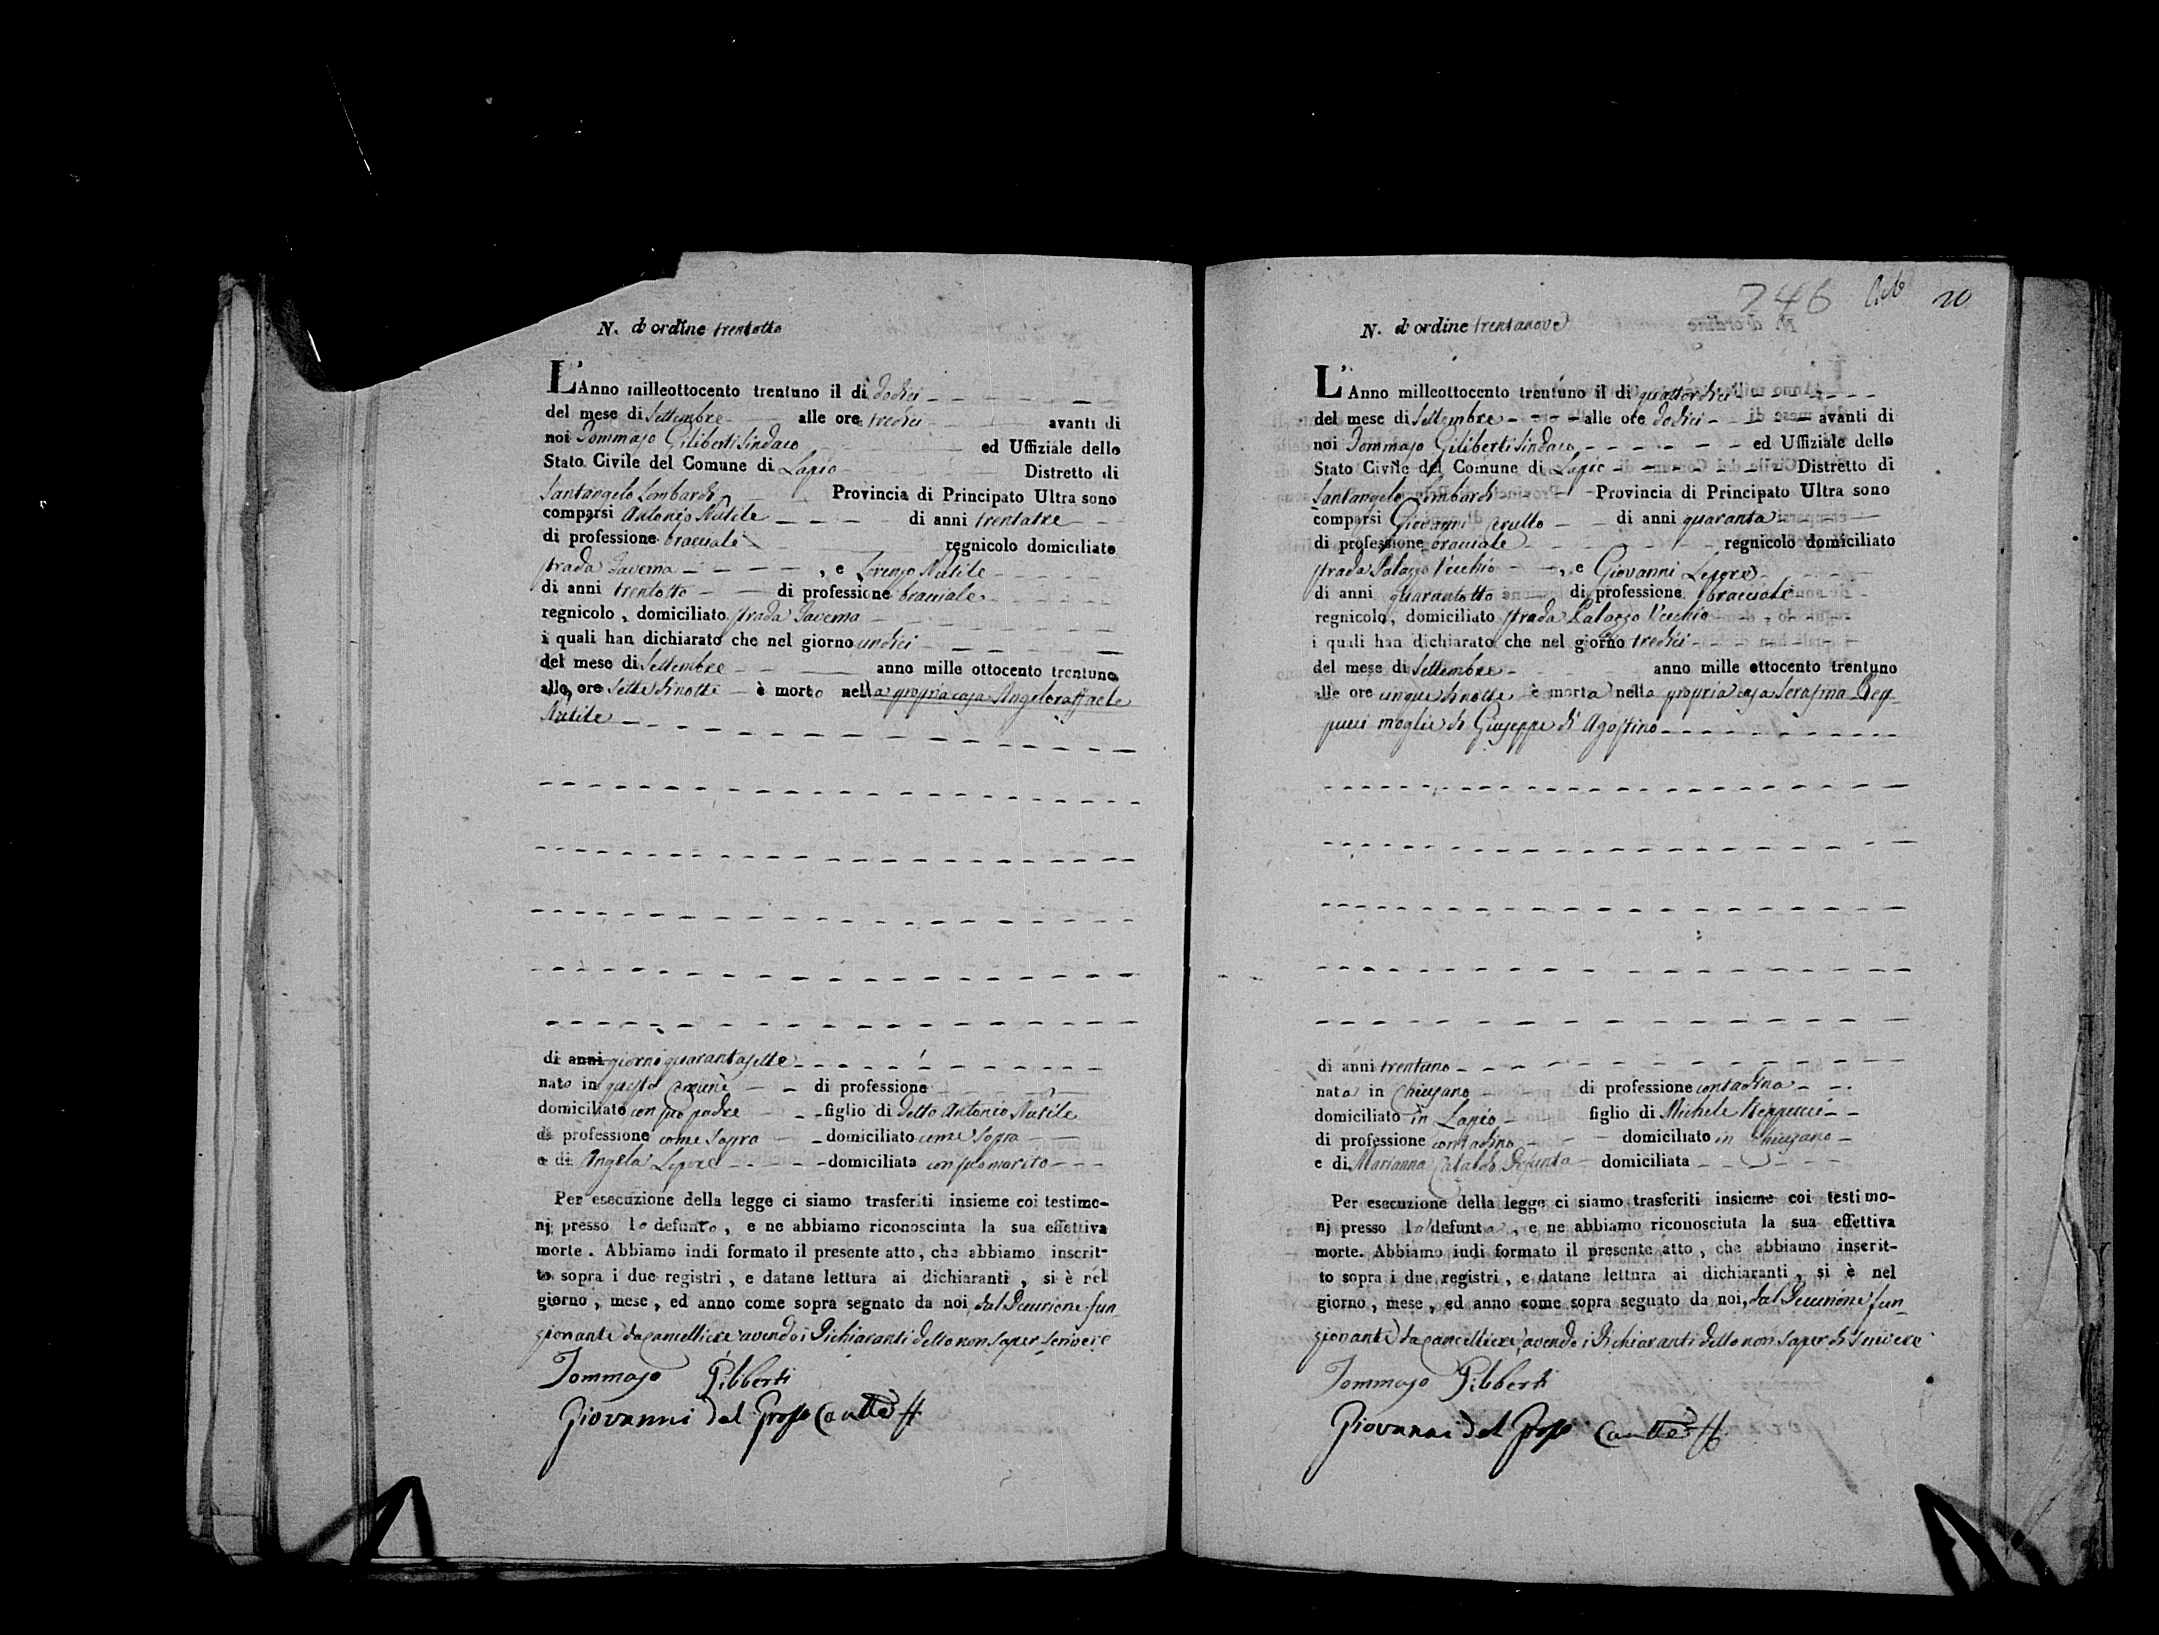 N. d'ordine trentotto
L'Anno milleottocento trentuno il dì dodici
del mese di Settembre alle ore tredici avanti di
noi Tommaso Giliberti Sindaco ed Uffiziale dello
Stato Civile del Comune di Lapio Distretto di
Santangelo Lombardi Provincia di Principato Ultra sono
comparsi Antonio Nutile di anni trentatre
di professione bracciale regnicolo domiciliato
strada Taverna , e Lorenzo Nutile
di anni trentotto di professione bracciale
regnicolo , domiciliato strada Taverna
i quali han dichiarato che nel giorno undici
del mese di Settembre anno mille ottocento trentuno
alle ore sette di notte è morto nella propria casa Angeloraffaele
Nutile
di anni giorni quarantasette
nato in questo Comune di professione
domiciliato con suo padre figlio di detto Antonio Nutile
di professione come sopra domiciliato come sopra
e di Angela Lepore domiciliata con suo marito
Per esecuzione della legge ci siamo trasferiti insieme coi testimo-
nj presso lo defunto , e ne abbiamo riconosciuta la sua effettiva
morte . Abbiamo indi formato il presente atto , che abbiamo inscrit-
to sopra i due registri , e datane lettura ai dichiaranti , si è nel
giorno , mese , ed anno come sopra segnato da noi, dal Decurione fun
zionante da cancelliere avendo i Dichiaranti detto non saper scrivere
Tommaso Giliberti
Giovanni del Grosso
746 20
N. d'ordine trentanove
L'Anno milleottocento trentuno il dì quattordici
del mese di Settembre alle ore dodici avanti di
noi Tommaso Giliberti Sindaco ed Uffiziale dello
Stato Civile del Comune di Lapio Distretto di
Santangelo Lombardi Provincia di Principato Ultra sono
comparsi Giovanni di anni quaranta
di professione bracciale regnicolo domiciliato
strada Palazzo Vecchio , e Giovanni Lepore
di anni quarantotto di professione bracciale
regnicolo , domiciliato strada Palazzo Vecchio
i quali han dichiarato che nel giorno tredici
del mese di Settembre anno mille ottocento trentuno
alle ore cinque di notte è morta nella propria casa Serafina Rep-
pucci moglie di Giuseppe di Agostino
di anni trentuno
nata in Chiusano di professione contadina
domiciliato in Lapio figlio di Michele Reppucci
di professione contadino domiciliato in Chiusano
e di Marianna Cataldo Defunta domiciliata
Per esecuzione della legge ci siamo trasferiti insieme coi testimo-
nj presso la defunta , e ne abbiamo riconosciuta la sua effettiva
morte. Abbiamo indi formato il presente atto , che abbiamo inserit-
to sopra i due registri , e datane lettura ai dichiaranti , si è nel
giorno , mese , ed anno come sopra segnato da noi, dal Decurione fun
zionante da cancelliere, avendo i Dichiaranti detto non saper di scrivere
Tommaso Giliberti
Giovanni del Grosso